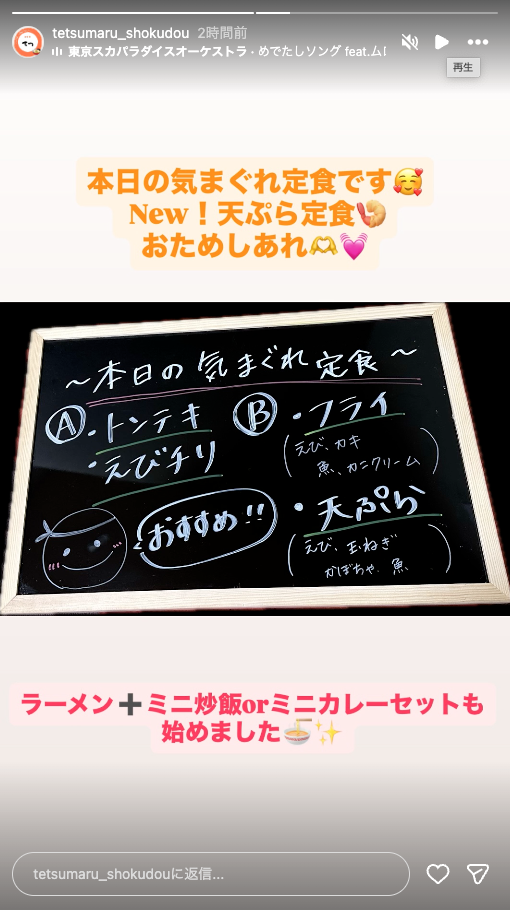 tetsumaru_shokudou 2時間前
東京スカパラダイスオーケストラ・めでたしソング feat.ム
再生
本日の気まぐれ定食です🥰
New！天ぷら定食🍤
おためしあれ🫶💓
～本日の気まぐれ定食～
Ⓐ・トンテキ
・えびチリ
おすすめ!!
Ⓑ・フライ
(えび、カキ
魚、カニクリーム)
・天ぷら
(えび、玉ねぎ
かぼちゃ、魚)
ラーメン➕ミニ炒飯orミニカレーセットも
始めました🍜✨
tetsumaru_shokudouに返信...